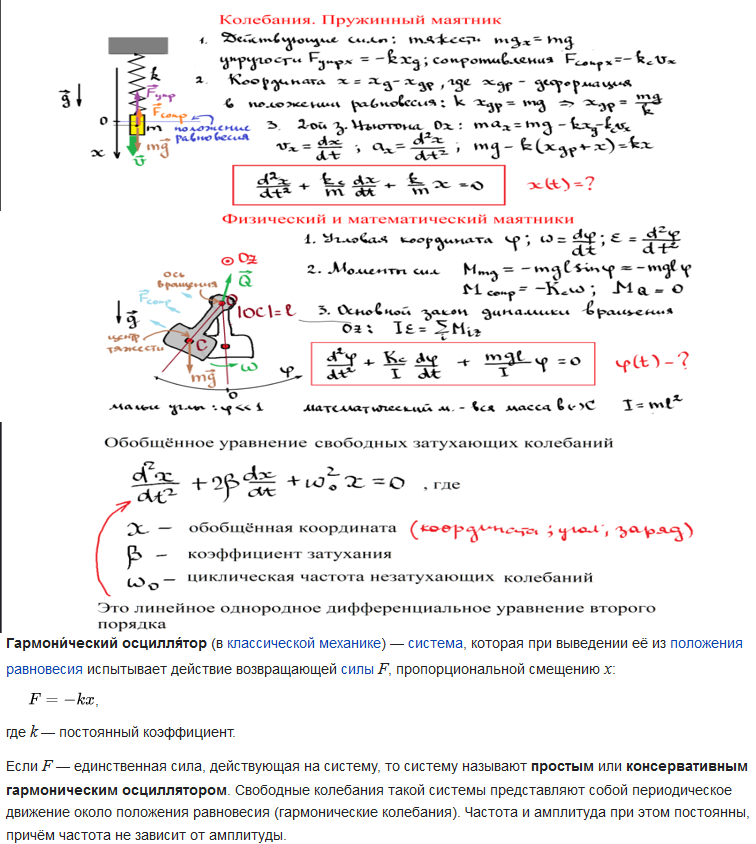 Колебания. Пружинный маятник
1. Действующие силы: тяжести mgₓ = mg
упругости Fупрₓ = -kxg; сопротивления Fсопрₓ = -kcvₓ
2. Координата x = xg - xgр, где xgр - деформация
в положении равновесия: k xgр = mg ⇒ xgр = mg/k
3. 2ой з. Ньютона Ox: maₓ = mg - kxg - kcvₓ
vₓ = dx/dt ; aₓ = d²x/dt² ; mg - k(xgр + x) = kx
d²x/dt² + kc/m dx/dt + k/m x = 0 x(t) = ?
g
k
Fупр
Fсопр
0
m
положение
равновесия
x
mg
v
Физический и математический маятники
1. Угловая координата φ; ω = dφ/dt; ε = d²φ/dt²
2. Моменты сил Mmg = -mglsinφ = -mglφ
Mсопр = -Kcω; MQ = 0
3. Основной закон динамики вращения
Oz: Iε = Σ Miz
i
d²φ/dt² + Kc/I dφ/dt + mgl/I φ = 0 φ(t) - ?
Oz
ось
вращения
Q
Fсопр
O
|OC| = l
g
центр
тяжести
C
ω
φ
mg
0
малые углы: φ << 1 математический м. - вся масса в т. C I = ml²
Обобщённое уравнение свободных затухающих колебаний
d²x/dt² + 2β dx/dt + ω₀² x = 0 , где
x — обобщённая координата (координата; угол, заряд)
β — коэффициент затухания
ω₀ — циклическая частота незатухающих колебаний
Это линейное однородное дифференциальное уравнение второго
порядка
Гармони́ческий осцилля́тор (в классической механике) — система, которая при выведении её из положения
равновесия испытывает действие возвращающей силы F, пропорциональной смещению x:
F = −kx,
где k — постоянный коэффициент.
Если F — единственная сила, действующая на систему, то систему называют простым или консервативным
гармоническим осциллятором. Свободные колебания такой системы представляют собой периодическое
движение около положения равновесия (гармонические колебания). Частота и амплитуда при этом постоянны,
причём частота не зависит от амплитуды.